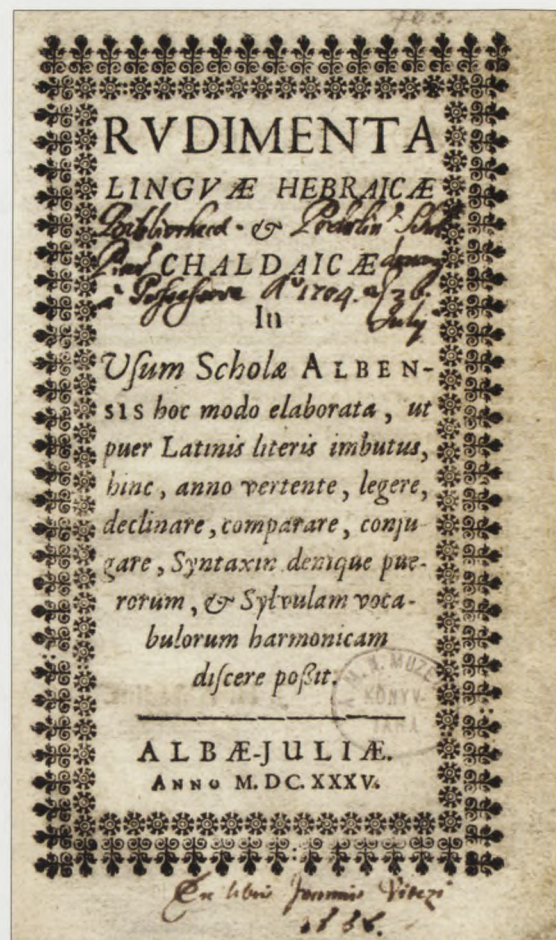 763.
RVDIMENTA
LINGVÆ HEBRAICÆ
&
CHALDAICÆ
1704. 26.
July
In
Uſum Scholæ ALBEN-
SIS hoc modo elaborata, ut
puer Latinis literis imbutus,
hinc, anno vertente, legere,
declinare, comparare, conju-
gare, Syntaxin denique pue-
rorum, & Sylvulam voca-
bulorum harmonicam
diſcere poßit.
M. N. MUZE
KÖNYV-
TARA
ALBÆ-JULIÆ.
ANNO M. DC. XXXV.
Ex libris Joannis Vitezi